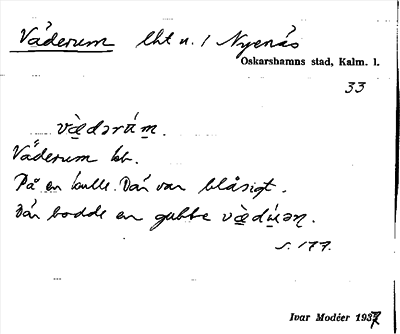 Väderum lht u. / Nyenäs
Oskarshamns stad, Kalm. l.
33
Väderum
På en kulle. Där var blåsigt.
Där bodde en gubbe
s. 177.
Ivar Modéer 1937